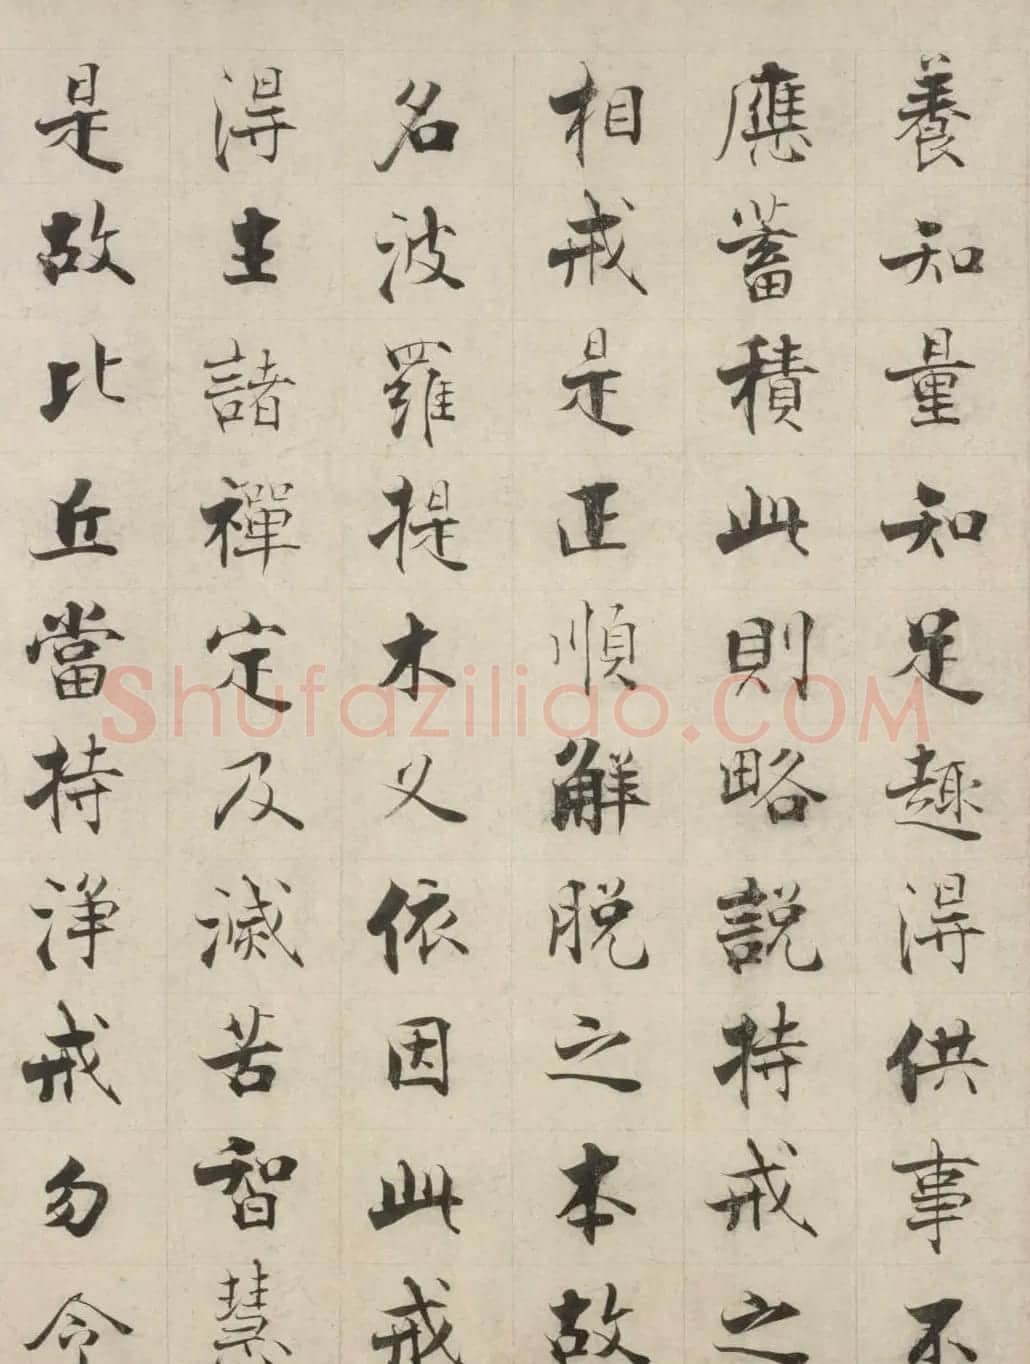 養知量知足趣得供事不
應蓄積此則略説持戒之
相戒是正順解脱之本故
名波羅提木义依因此戒
得主諸禪定及滅苦智慧
是故比丘當持淨戒勿令
Shufaziliao.COM